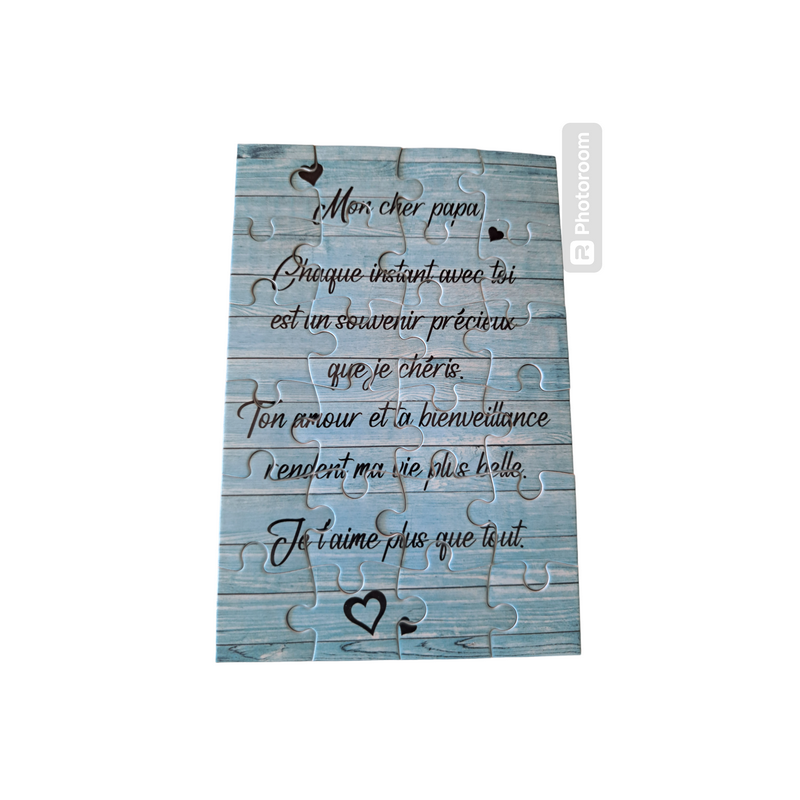 Mon cher papa,
Chaque instant avec toi
est un souvenir précieux
que je chéris.
Ton amour et ta bienveillance
rendent ma vie plus belle.
Je t'aime plus que tout.
Photoroom